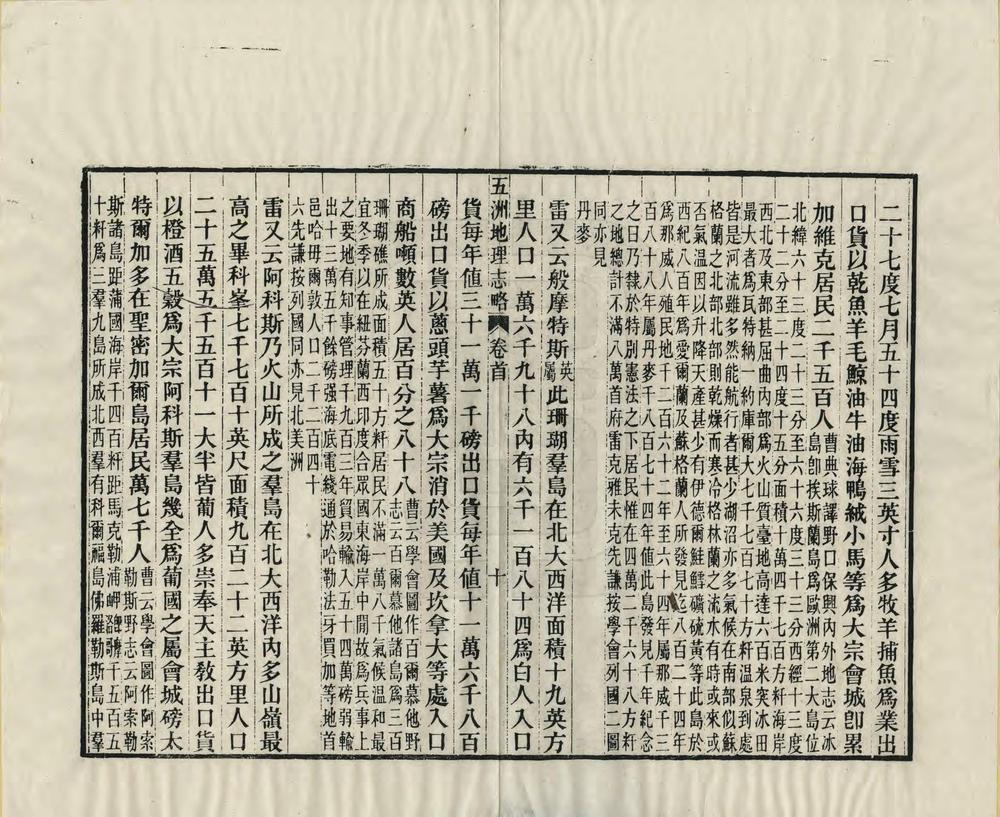 二十七度七月五十四度雨雪三英寸人多牧羊捕魚爲業出
口貨以乾魚羊毛鯨油牛油海鴨絨小馬等爲大宗會城卽累
加維克居民二千五百人曹典球譯野口保興內外地志云冰
島卽挨斯蘭島爲歐洲第二大島位
北緯六十三度二十三分至六十六度三十三分西經十三度
二十二分至二十四度十五分面積十萬四千七百方粁海岸
西北及東部甚屈曲內部爲火山質臺地高達六百米突冰田
最大者爲瓦特納一約庫爾大七千七百七十方粁溫泉到處
皆是河流雖多然能航行者甚少湖沼亦多氣候在南部似蘇
格蘭之北部北部則乾燥而寒冷格林蘭之流水有時或來或
否氣溫因以升降天產甚少有伊德爾鮭鱈礦硫黃等此島於
西紀八百年爲愛爾蘭及蘇格蘭人所發見迄八百二十四年
爲那威人殖民地千二百六十二年至六十四年屬那威千三
百八十八年屬丹麥千八百七十四年値此島發見千年紀念
之日乃隸於特別憲法之下居民惟在四萬二千六十八方粁
之地總計不滿八萬首府雷克雅未克先謙按學會列國二圖
同亦見
丹麥
雷又云般摩特斯英屬此珊瑚羣島在北大西洋面積十九英方
里人口一萬六千九十八內有六千一百八十四爲白人入口
五洲地理志略 卷首 十
貨每年値三十一萬一千磅出口貨每年値十一萬六千八百
磅出口貨以蔥頭芋薯爲大宗消於美國及坎拿大等處入口
商船噸數英人居百分之八十八曹云學會圖作百爾慕他野
志云百爾慕他諸島爲三百
珊瑚礁所成面積五十方粁居民不滿一萬八千氣候溫和最
宜冬季以在紐芬蘭西印度合眾國東海岸中閒故爲兵事上
之要地有知事管理千九百三年貿易輸入五十四萬磅弱輸
出十三萬五千餘磅強海底電綫通於哈勒法牙買加等地首
邑哈毋爾敦人口二千二百四十
六先謙按列國同亦見北美洲
雷又云阿科斯乃火山所成之羣島在北大西洋內多山嶺最
高之畢科峯七千七百十英尺面積九百二十二英方里人口
二十五萬五千五百十一大半皆葡人多崇奉天主敎出口貨
以橙酒五穀爲大宗阿科斯羣島幾全爲葡國之屬會城磅太
特爾加多在聖密加爾島居民萬七千人曹云學會圖作阿索
勒斯野志云阿索勒
斯諸島距蒲國海岸千四百粁距馬克勒浦岬千五百五
十粁爲三羣九島所成北西羣有科爾福島佛羅勒斯島中羣